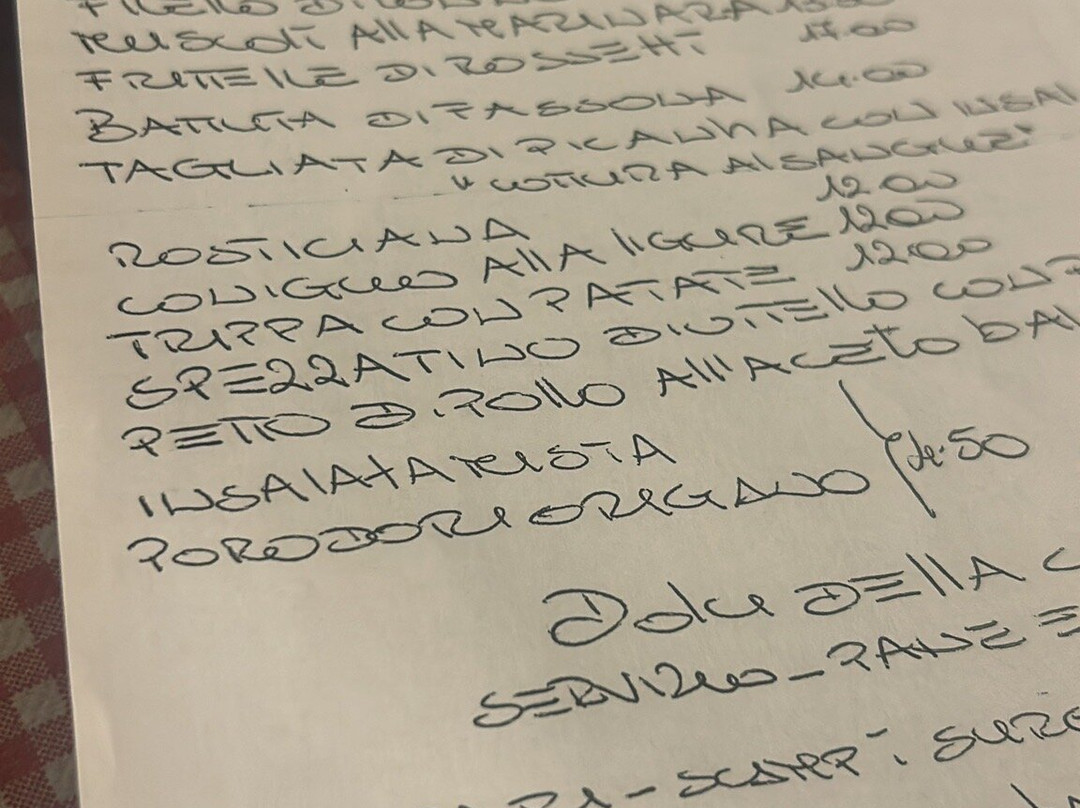 FILETTO DI
MUSCOLI ALLA MARINARA 13.00
FRITTELLE DI ROSSETTI 17.00
BATTUTA DI FASSONA 14.00
TAGLIATA DI PICANHA CON INSAL
"COTTURA AL SANGUE"
ROSTICIANA 12.00
CONIGLIO ALLA LIGURE 12.00
TRIPPA CON PATATE 12.00
SPEZZATINO DI VITELLO CON P
PETTO DI POLLO ALL'ACETO BAL
INSALATA MISTA
POMODORI E ORIGANO 4.50
DOLCI DELLA C
SERVIZIO - PANE E